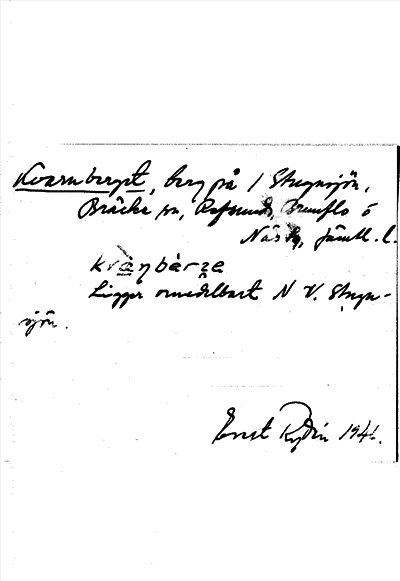 Kvarnberget, berg på / Stugusjön,
Bräcke sn, Refsunds, Brunflo o
Näs tg, Jämtl. l.
kvànbàrʒe
Ligger omedelbart N V. Stugu-
sjön.
Ernst Rydin 1946.